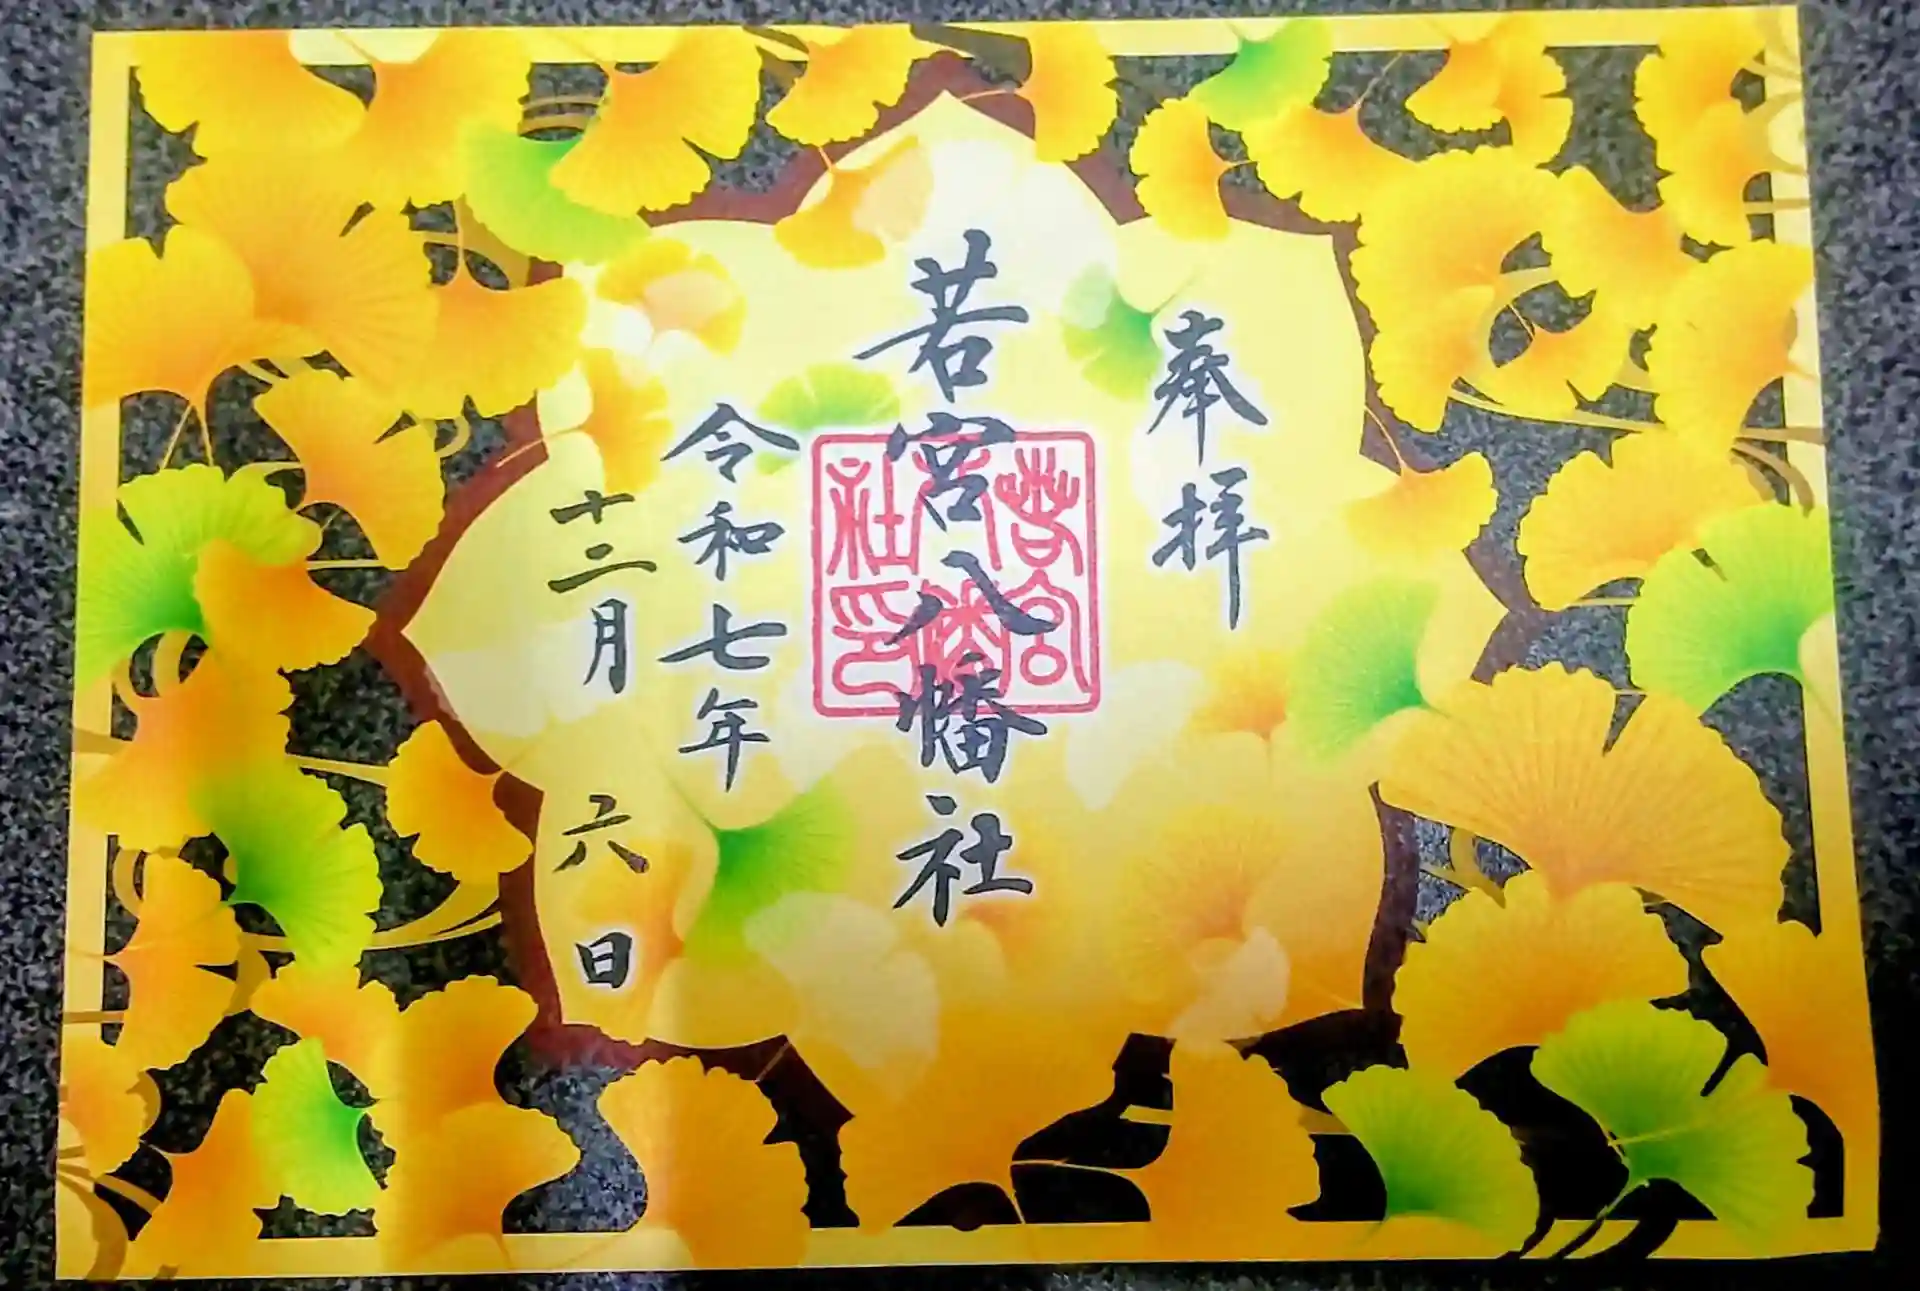 奉拝
若宮八幡社
令和七年
十二月六日
若宮
八幡
社印